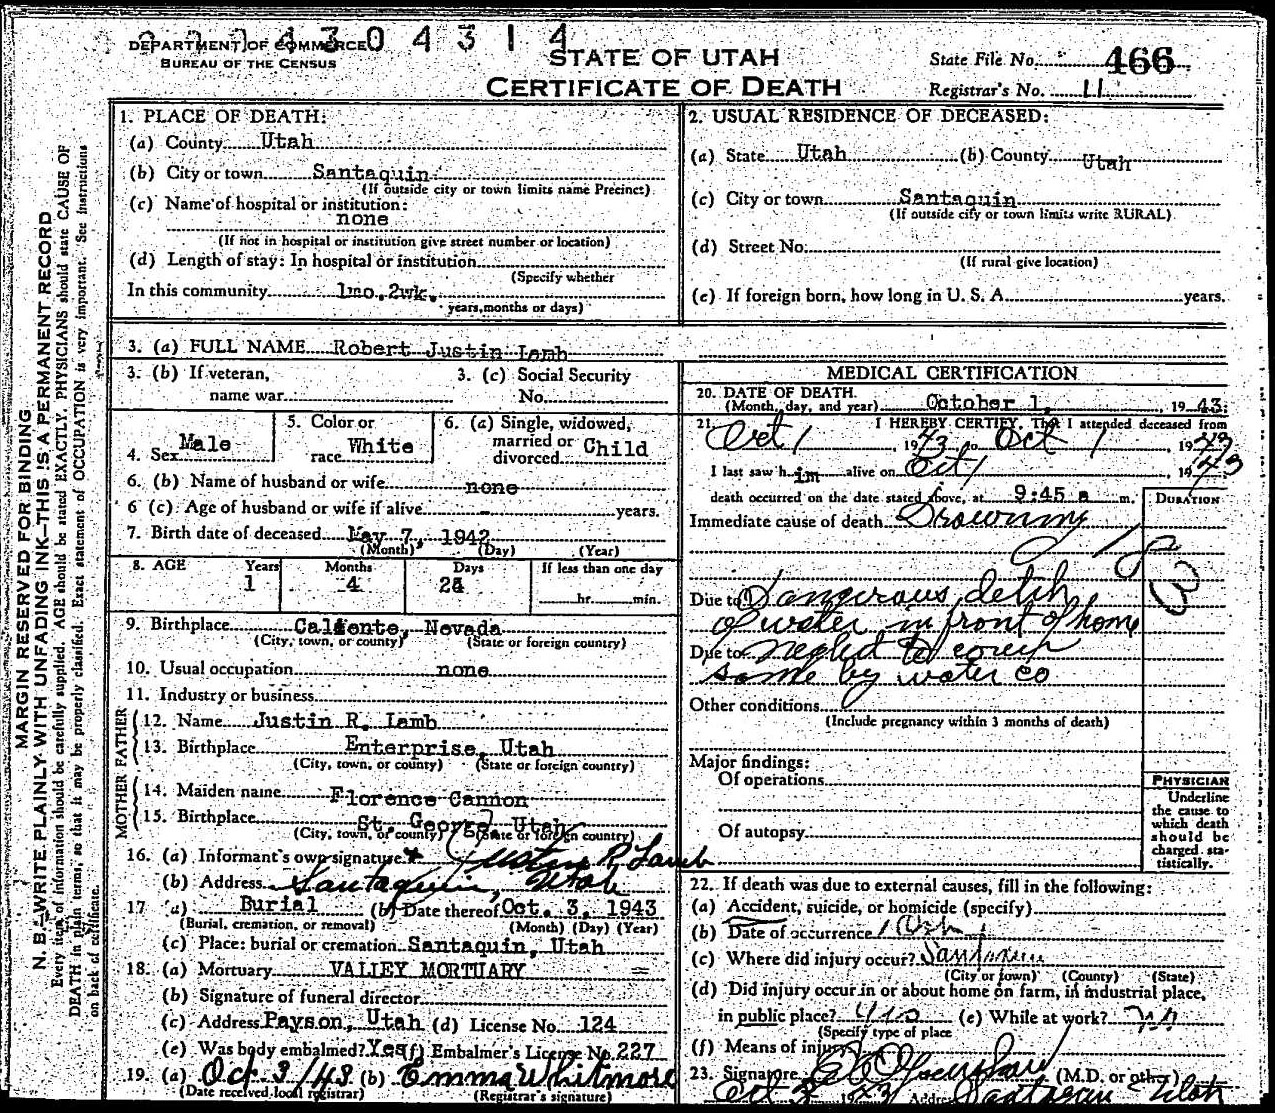 DEPARTMENT OF COMMERCE 0 4 3 1 4
BUREAU OF THE CENSUS
STATE OF UTAH
CERTIFICATE OF DEATH
State File No. 466
Registrar's No. 11
MARGIN RESERVED FOR BINDING
N. B.—WRITE PLAINLY WITH UNFADING INK—THIS IS A PERMANENT RECORD
Every item of information should be carefully supplied. AGE should be stated EXACTLY. PHYSICIANS should state CAUSE OF
DEATH in plain terms, so that it may be properly classified. Exact statement of OCCUPATION is very important. See instructions
on back of certificate.
1. PLACE OF DEATH:
(a) County Utah
(b) City or town Santaquin
(If outside city or town limits name Precinct)
(c) Name of hospital or institution:
none
(If not in hospital or institution give street number or location)
(d) Length of stay: In hospital or institution
(Specify whether
In this community 1mo.2wk.
years, months or days)
2. USUAL RESIDENCE OF DECEASED:
(a) State Utah (b) County Utah
(c) City or town Santaquin
(If outside city or town limits write RURAL)
(d) Street No:
(If rural give location)
(e) If foreign born, how long in U. S. A. years.
3. (a) FULL NAME Robert Justin Lamb
3. (b) If veteran,
name war
3. (c) Social Security
No.
4. Sex Male
5. Color or
race White
6. (a) Single, widowed,
married or
divorced Child
6. (b) Name of husband or wife none
6 (c) Age of husband or wife if alive - years.
7. Birth date of deceased May 7, 1942
(Month) (Day) (Year)
8. AGE Years Months Days If less than one day
1 4 24
hr. min.
9. Birthplace Caliente, Nevada
(City, town, or county) (State or foreign country)
10. Usual occupation none
11. Industry or business
FATHER
12. Name Justin R. Lamb
13. Birthplace Enterprise, Utah
(City, town, or county) (State or foreign country)
MOTHER
14. Maiden name Florence Cannon
15. Birthplace St. George, Utah
(City, town, or county) (State or foreign country)
16. (a) Informant's own signature Justin R Lamb
(b) Address Santaquin, Utah
17 (a) Burial (b) Date thereof Oct. 3, 1943
(Burial, cremation, or removal) (Month) (Day) (Year)
(c) Place: burial or cremation Santaquin, Utah
18. (a) Mortuary VALLEY MORTUARY
(b) Signature of funeral director
(c) Address Payson, Utah (d) License No. 124
(e) Was body embalmed? Yes (f) Embalmer's License No. 227
19. (a) Oct 3/43 (b) Emma Whitmore
(Date received local registrar) (Registrar's signature)
MEDICAL CERTIFICATION
20. DATE OF DEATH.
(Month, day, and year) October 1, 1943.
21. I HEREBY CERTIFY, That I attended deceased from
Oct 1, 1943 to Oct 1, 1943
I last saw him alive on Oct 1 1943
death occurred on the date stated above, at 9:45 a m.
DURATION
Immediate cause of death Drowning
Due to Dangerous ditch
of water in front of home
Due to neglect to cover
same by water co
Other conditions
(Include pregnancy within 3 months of death)
Major findings:
Of operations
Of autopsy
PHYSICIAN
Underline
the cause to
which death
should be
charged sta-
tistically.
22. If death was due to external causes, fill in the following:
(a) Accident, suicide, or homicide (specify)
(b) Date of occurrence
(c) Where did injury occur? Santaquin
(City or town) (County) (State)
(d) Did injury occur in or about home on farm, in industrial place,
in public place? (e) While at work? no
(Specify type of place
(f) Means of injury
23. Signature (M.D. or other)
Oct 3 1943 Address Santaquin Utah